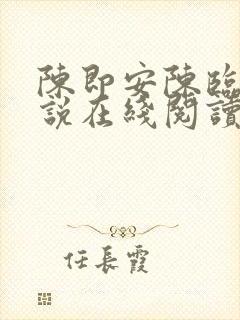 陳即安陳臨
說在綫閱讀
任長霞